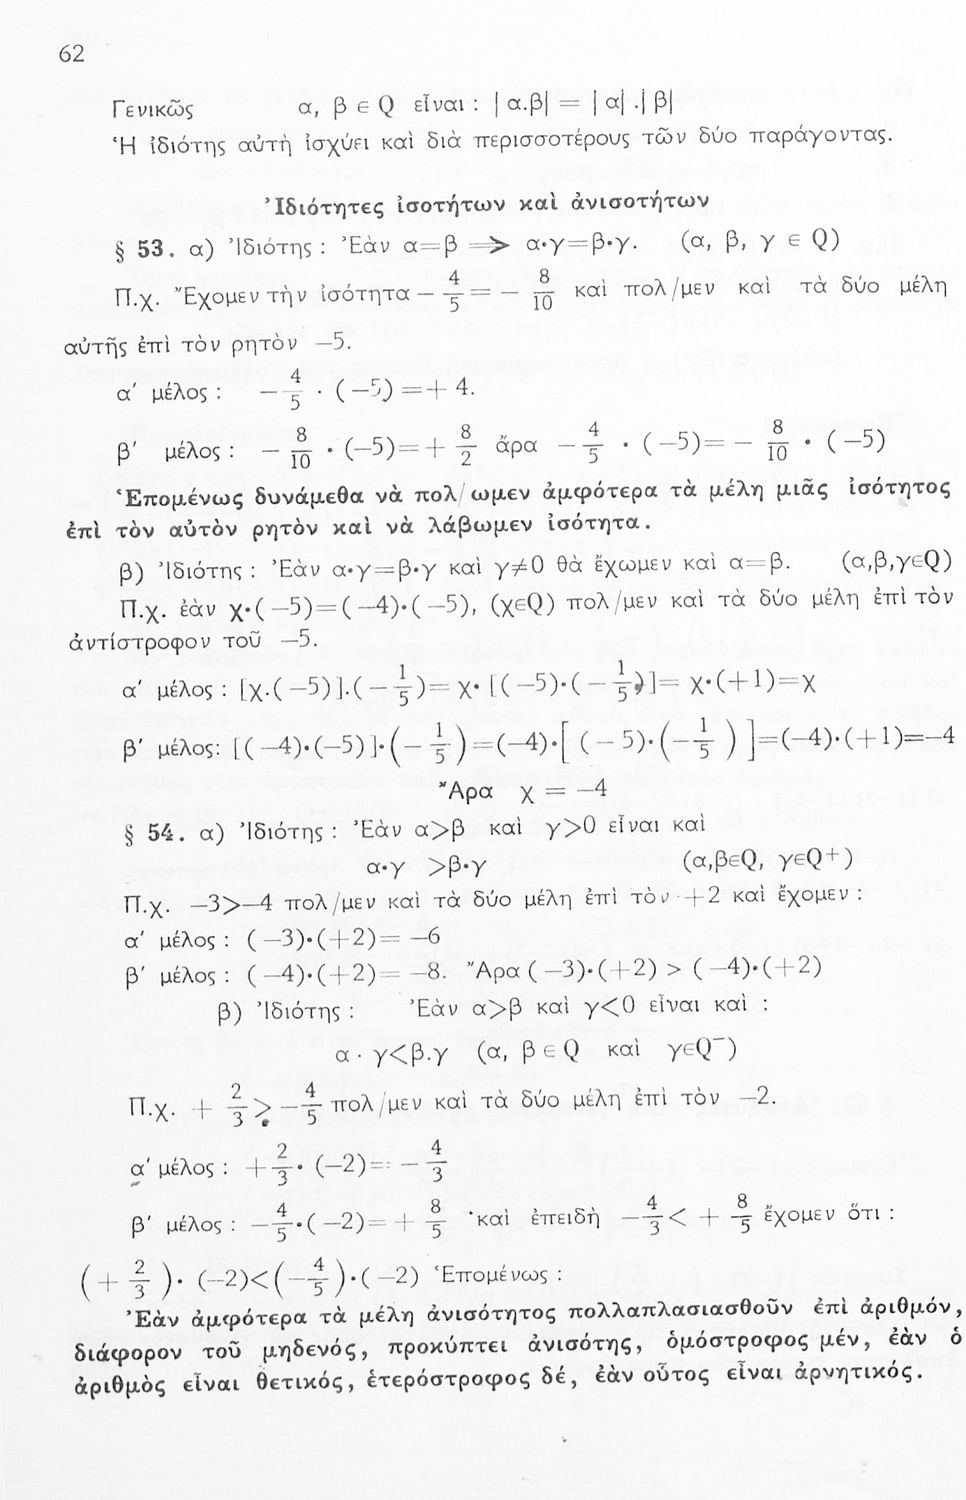 62
Γενικῶς α, β ∈ Q εἶναι : | α.β| = | α| .| β|
Ἡ ἰδιότης αὐτὴ ἰσχύει καὶ διὰ περισσοτέρους τῶν δύο παράγοντας.
Ἰδιότητες ἰσοτήτων καὶ ἀνισοτήτων
§ 53. α) Ἰδιότης : Ἐὰν α=β ⇒ α·γ=β·γ. (α, β, γ ∈ Q)
Π.χ. Ἔχομεν τὴν ἰσότητα − 4/5 = − 8/10 καὶ πολ/μεν καὶ τὰ δύο μέλη
αὐτῆς ἐπὶ τὸν ρητὸν −5.
α′ μέλος : − 4/5 · (−5) =+ 4.
β′ μέλος : − 8/10 · (−5)= + 8/2 ἄρα − 4/5 · (−5)= − 8/10 · (−5)
Ἑπομένως δυνάμεθα νὰ πολ/ωμεν ἀμφότερα τὰ μέλη μιᾶς ἰσότητος
ἐπὶ τὸν αὐτὸν ρητὸν καὶ νὰ λάβωμεν ἰσότητα.
β) Ἰδιότης : Ἐὰν α·γ=β·γ καὶ γ≠0 θὰ ἔχωμεν καὶ α=β. (α,β,γ∈Q)
Π.χ. ἐὰν χ·(−5)=(−4)·(−5), (χ∈Q) πολ/μεν καὶ τὰ δύο μέλη ἐπὶ τὸν
ἀντίστροφον τοῦ −5.
α′ μέλος : [χ.(−5)].(− 1/5)= χ· [(−5)·(− 1/5)]= χ·(+1)=χ
β′ μέλος: [(−4)·(−5)]·(− 1/5)=(−4)·[(−5)·(− 1/5)]=(−4)·(+1)=−4
Ἄρα χ = −4
§ 54. α) Ἰδιότης : Ἐὰν α>β καὶ γ>0 εἶναι καὶ
α·γ >β·γ (α,β∈Q, γ∈Q+)
Π.χ. −3>−4 πολ/μεν καὶ τὰ δύο μέλη ἐπὶ τὸν +2 καὶ ἔχομεν :
α′ μέλος : (−3)·(+2)= −6
β′ μέλος : (−4)·(+2)= −8. Ἄρα (−3)·(+2) > (−4)·(+2)
β) Ἰδιότης : Ἐὰν α>β καὶ γ<0 εἶναι καὶ :
α · γ<β.γ (α, β ∈ Q καὶ γ∈Q−)
Π.χ. + 2/3 > − 4/5 πολ/μεν καὶ τὰ δύο μέλη ἐπὶ τὸν −2.
α′ μέλος : + 2/3 · (−2)= − 4/3
β′ μέλος : − 4/5 ·(−2)= + 8/5 καὶ ἐπειδὴ − 4/3 < + 8/5 ἔχομεν ὅτι :
(+ 2/3)· (−2)<(− 4/5)·(−2) Ἑπομένως :
Ἐὰν ἀμφότερα τὰ μέλη ἀνισότητος πολλαπλασιασθοῦν ἐπὶ ἀριθμόν,
διάφορον τοῦ μηδενός, προκύπτει ἀνισότης, ὁμόστροφος μέν, ἐὰν ὁ
ἀριθμὸς εἶναι θετικός, ἑτερόστροφος δέ, ἐὰν οὗτος εἶναι ἀρνητικός.